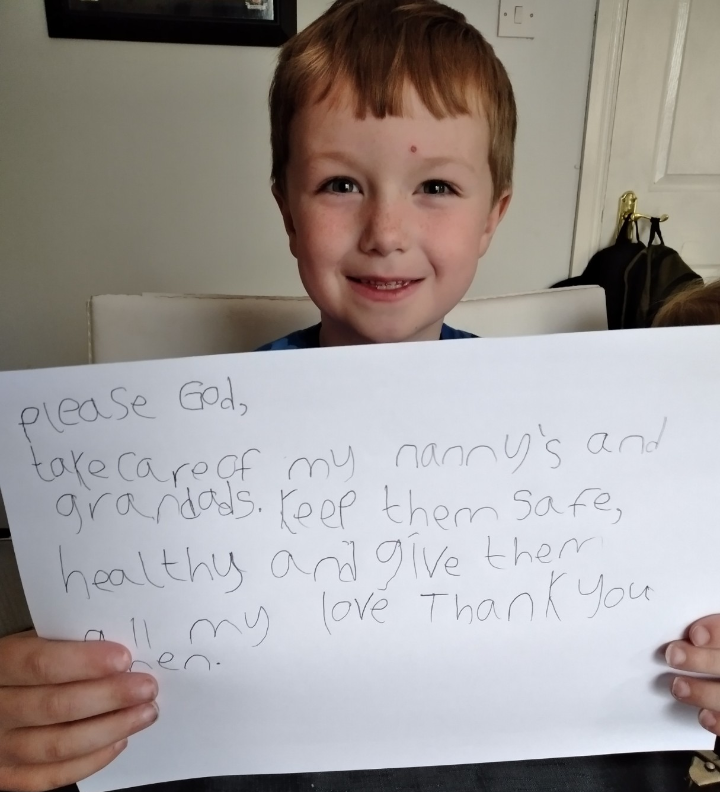 please God,
take care of my nanny's and
grandads. Keep them safe,
healthy and give them
all my love Thank You